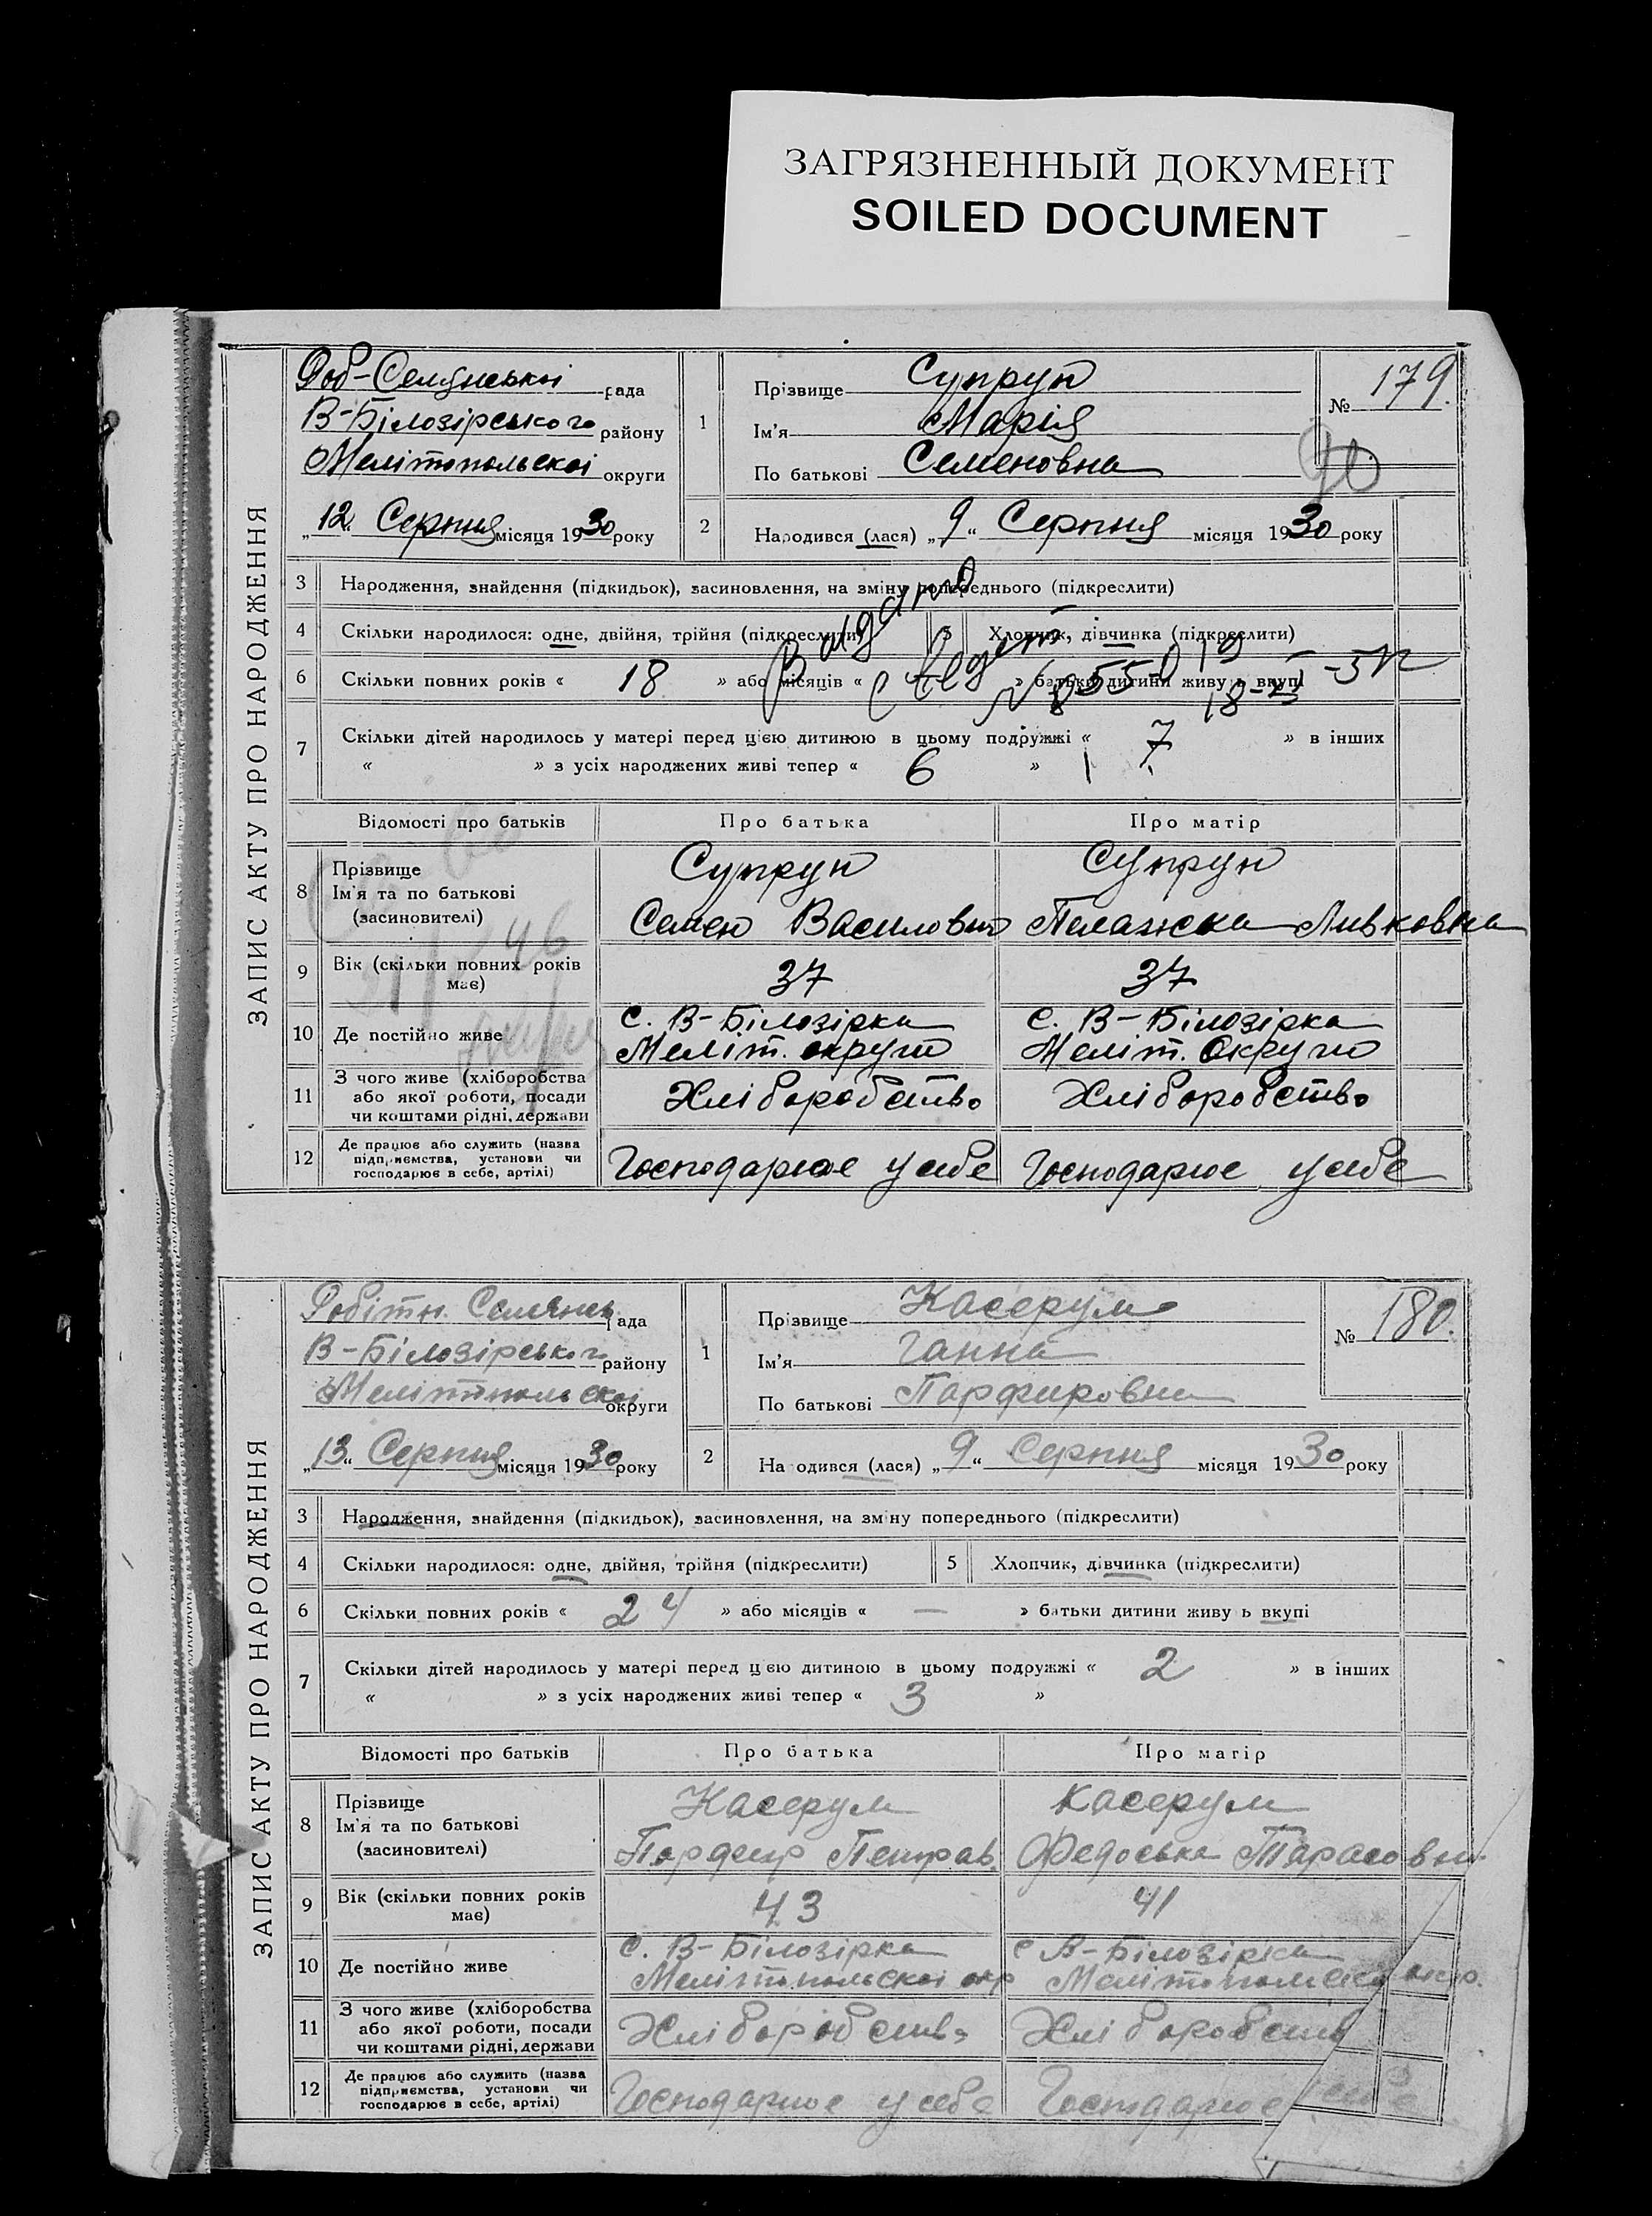 ЗАГРЯЗНЕННЫЙ ДОКУМЕНТ
SOILED DOCUMENT
ЗАПИС АКТУ ПРО НАРОДЖЕННЯ
Роб-Селянської рада
В-Білозірського району
Мелітопольскої округи
„12“ Серпня місяця 1930 року
1 Прізвище Супрун
Ім'я Марія
По батькові Семеновна
№ 179.
2 Народився (лася) „9“ Серпня місяця 1930 року
3 Народження, знайдення (підкидьок), засиновлення, на зміну попереднього (підкреслити)
4 Скільки народилося: одне, двійня, трійня (підкреслити) 5 Хлопчик, дівчинка (підкреслити)
6 Скільки повних років « 18 » або місяців « » батьки дитини живуть вкупі
7 Скільки дітей народилось у матері перед цією дитиною в цьому подружжі « 7 » в інших
« » з усіх народжених живі тепер « 6 »
Відомості про батьків Про батька Про матір
8 Прізвище Ім'я та по батькові (засиновителі)
Супрун Супрун
Семен Василович Пелажка Ливковна
9 Вік (скільки повних років має) 37 37
10 Де постійно живе
с. В-Білозірка с. В-Білозірка
Меліт. округи Меліт. Округи
11 З чого живе (хліборобства або якої роботи, посади чи коштами рідні, держави
Хліборобство Хліборобство
12 Де працює або служить (назва підприємства, установи чи господарює в себе, артілі)
Господарює у себе Господарює у себе
ЗАПИС АКТУ ПРО НАРОДЖЕННЯ
Робітн. Селянськ рада
В-Білозірського району
Мелітопольскої округи
„13“ Серпня місяця 1930 року
1 Прізвище Касерум
Ім'я Ганна
По батькові Парфировна
№ 180.
2 На одився (лася) „9“ Серпня місяця 1930 року
3 Народження, знайдення (підкидьок), засиновлення, на зміну попереднього (підкреслити)
4 Скільки народилося: одне, двійня, трійня (підкреслити) 5 Хлопчик, дівчинка (підкреслити)
6 Скільки повних років « 24 » або місяців « — » батьки дитини живу ь вкупі
7 Скільки дітей народилось у матері перед цією дитиною в цьому подружжі « 2 » в інших
« » з усіх народжених живі тепер « 3 »
Відомості про батьків Про батька Про матір
8 Прізвище Ім'я та по батькові (засиновителі)
Касерум Касерум
Парфир Петров Федоська Тарасовна
9 Вік (скільки повних років має) 43 41
10 Де постійно живе
с. В-Білозірка с В-Білозірка
Мелітопольскої окр Мелітопольскої окр.
11 З чого живе (хліборобства або якої роботи, посади чи коштами рідні, держави
Хліборобство Хліборобств
12 Де працює або служить (назва підприємства, установи чи господарює в себе, артілі)
Господарює у себе Господарює у себе